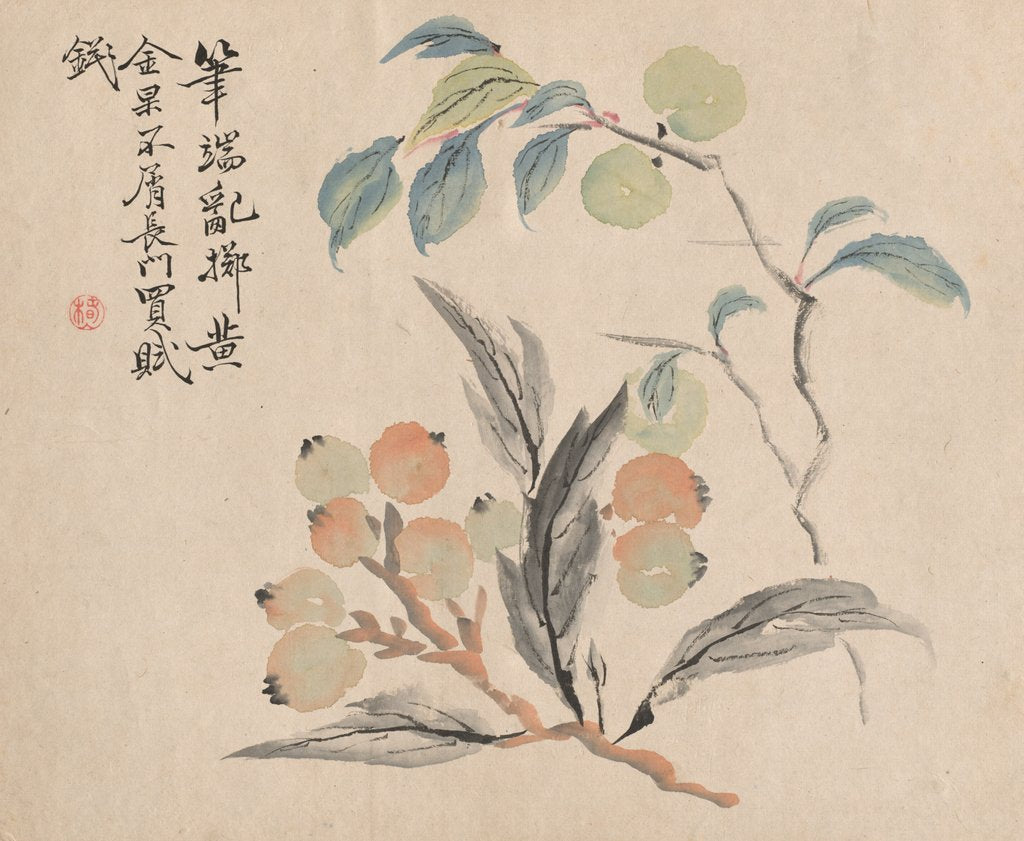 筆端亂擲黄
金果不屑長門買賦
錢